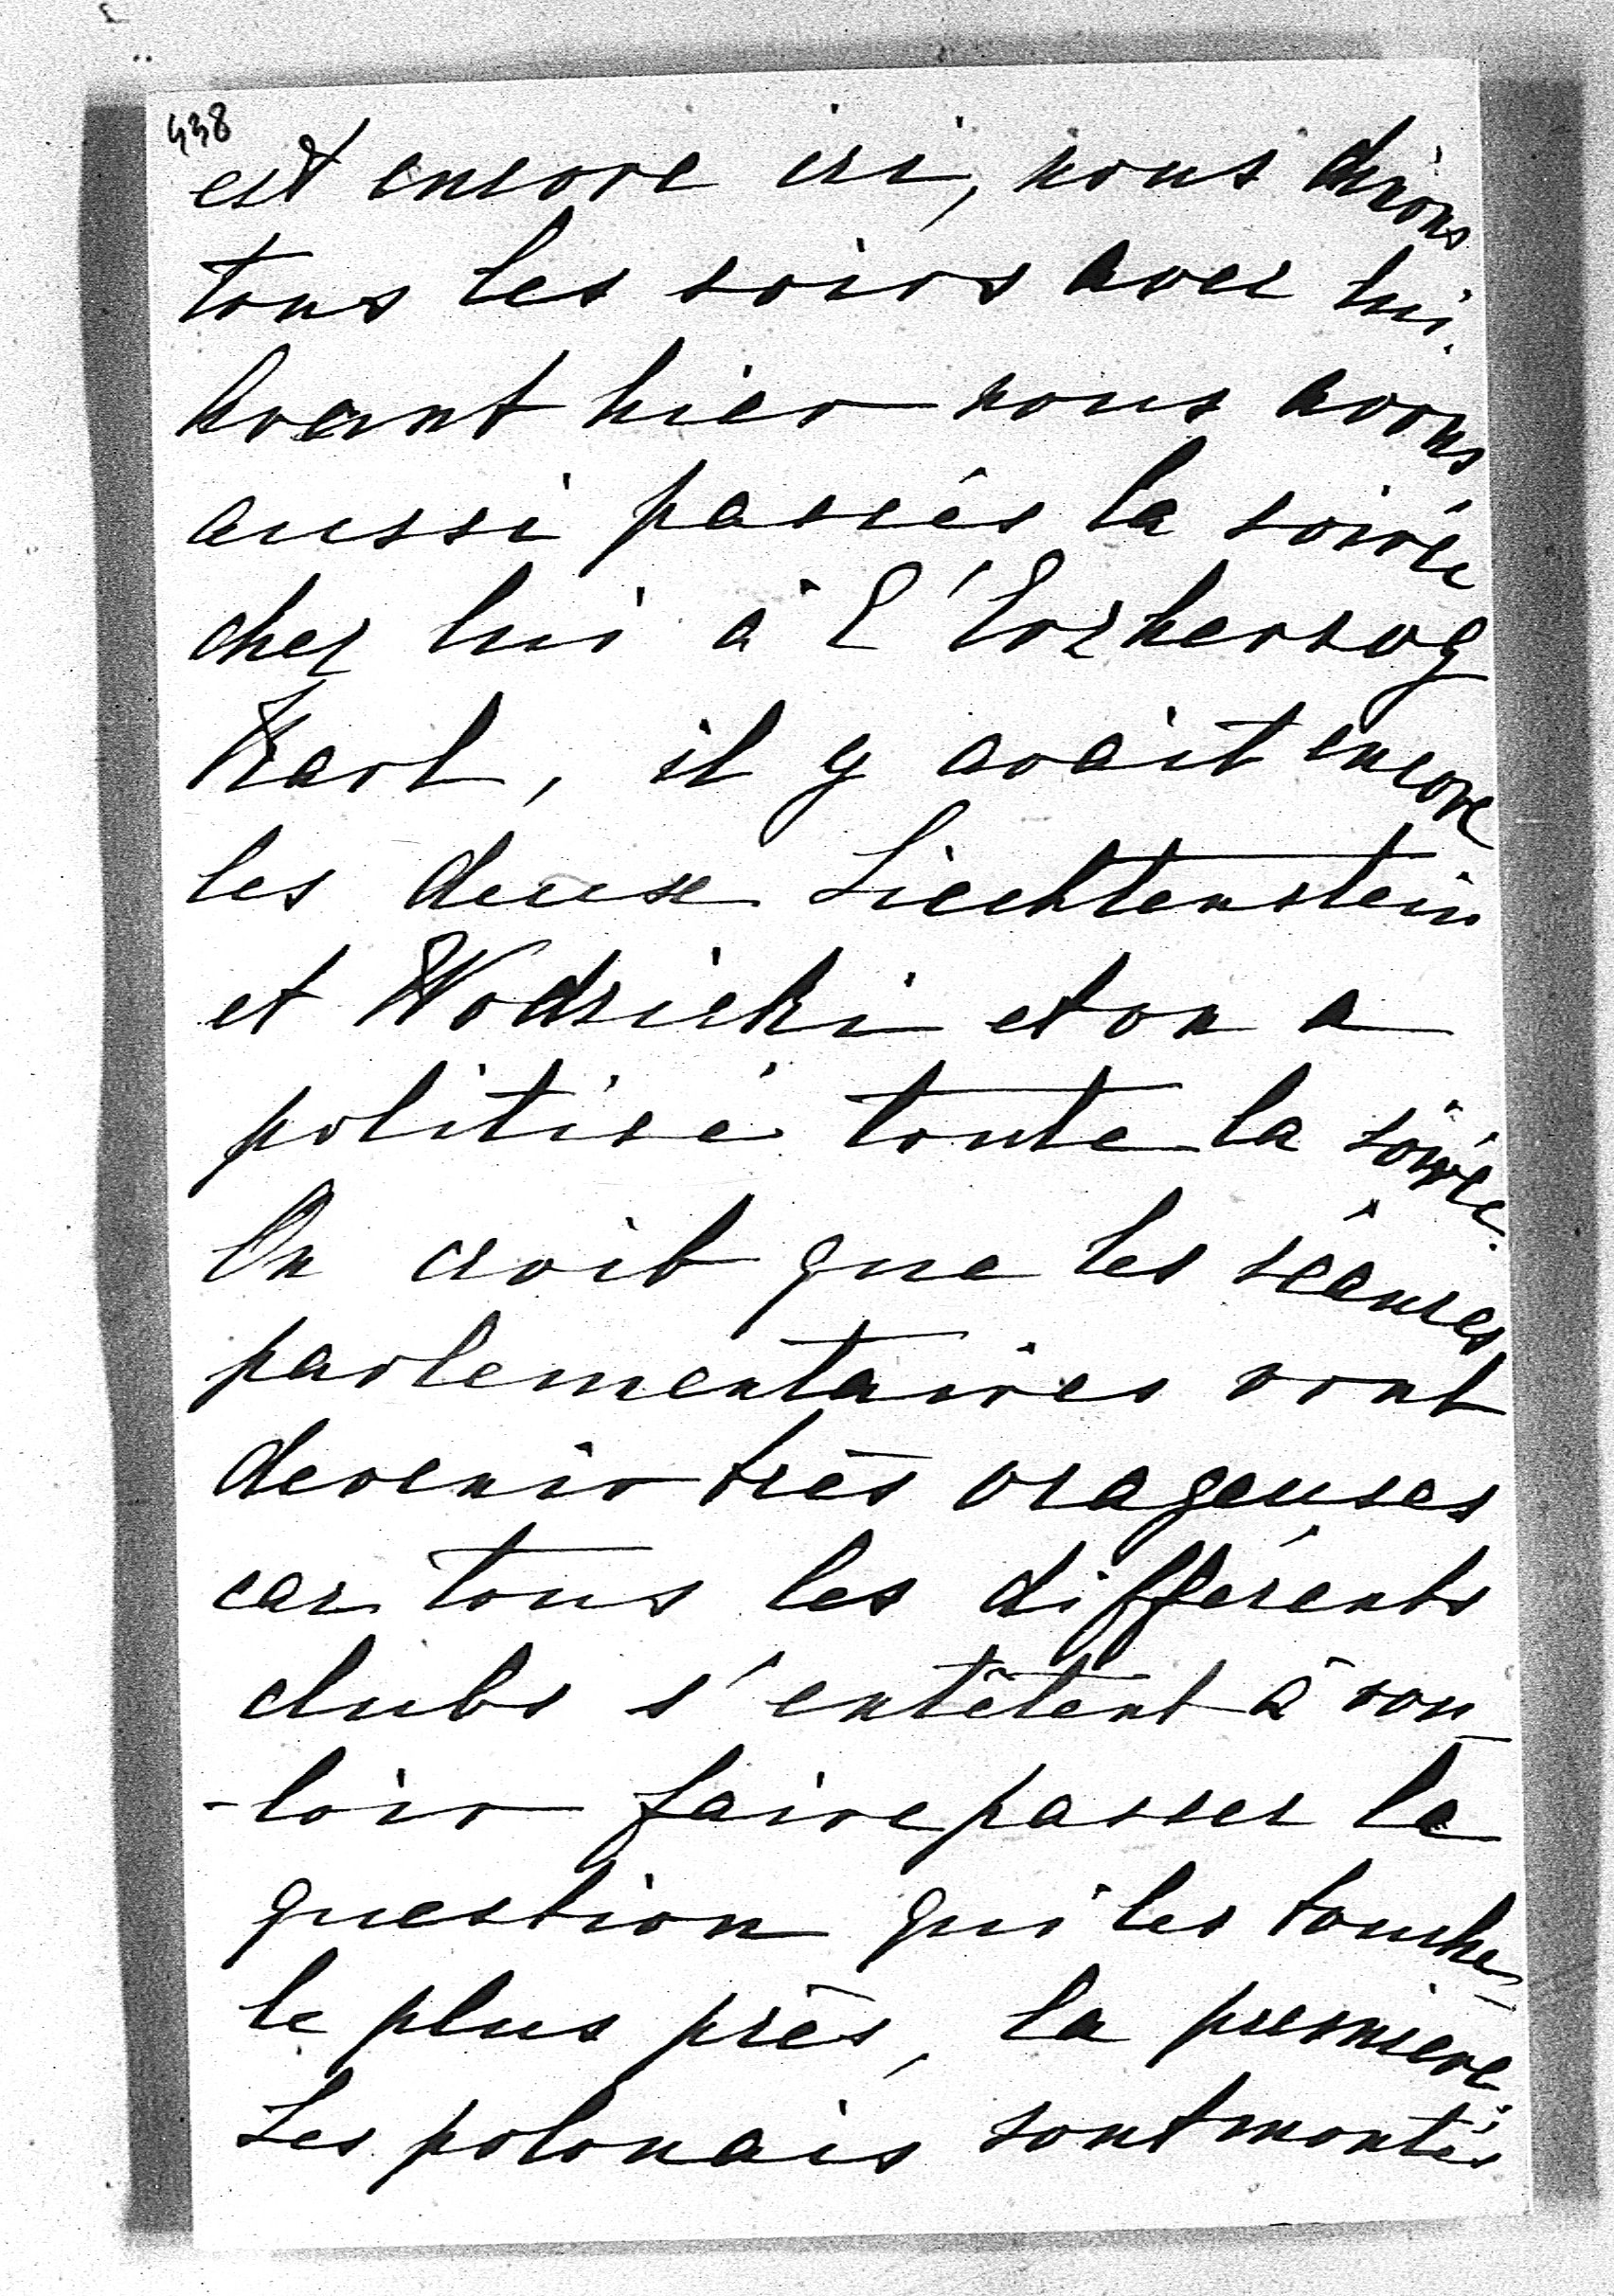 438
est encore ici, nous dinons
tous les soirs avec lui.
Avant hier nous avons
aussi passés la soirée
chez lui à l'Erzherzog
Karl, il y avait encore
les deux Liechtenstein
et Wodzicki et on a
politisé toute la soirée.
On croit que les séances
parlementaires vont
devenir très orageuses
car tous les différents
clubs s'entêtent à vou-
-loir faire passer la
question qui les touche
le plus près, la première.
Les polonais sont montés